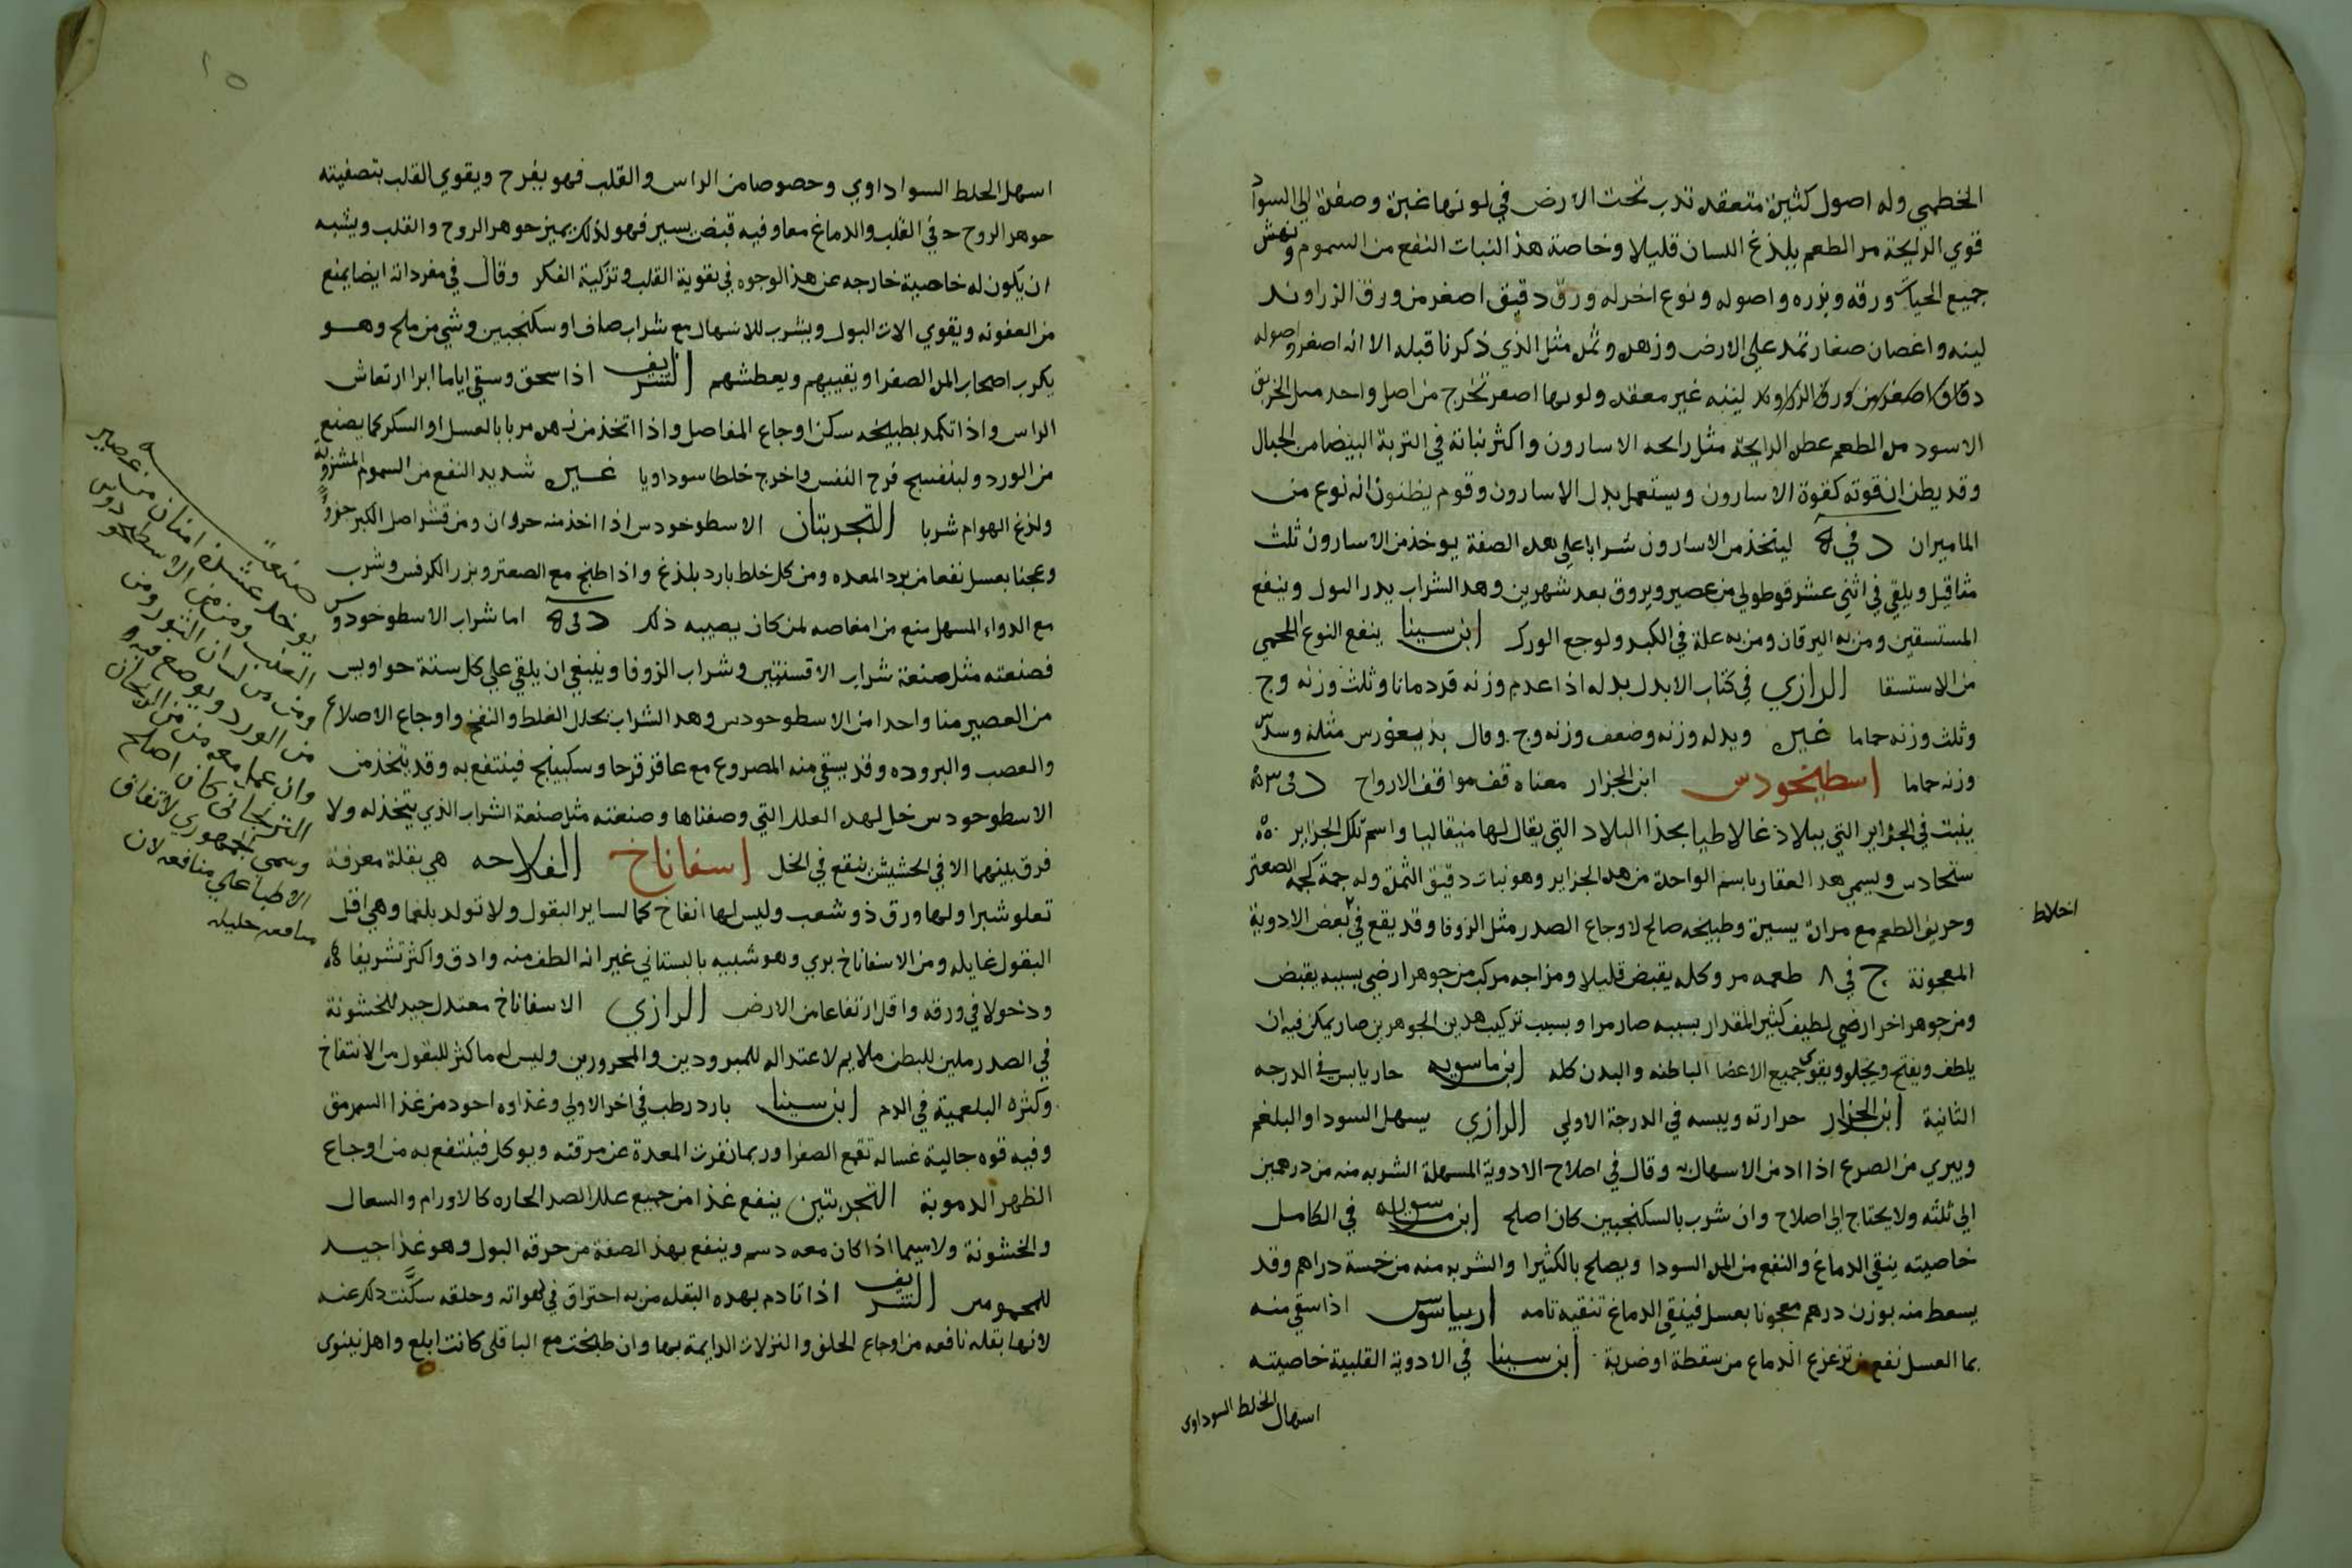 الخطمي وله اصول كثيرة متعقدة تدب تحت الارض في لونها غبرة وصفرة الي السواد
قوي الرايحة مر الطعم يلذغ اللسان قليلا وخاصة هذا النبات النفع من السموم ونهش
جميع الحيات ورقه وبزره واصوله ونوع اخر له ورق دقيق اصغر من ورق الزراوند
لينه واغصان صغار تمتد علي الارض وزهره وثمره مثل الذي ذكرنا قبله الا انه اصغر واصوله
دقاق اصغر من ورق الزراوند لينه غير معقده ولونها اصفر تخرج من اصل واحد مثل الخربق
الاسود مر الطعم عطر الرايحة مثل رايحه الاسارون واكثر نباته في التربة البيضا من الجبال
وقد يظن ان قوته كقوة الاسارون ويستعمل بدل الاسارون وقوم يظنون انه نوع من
الماميران د في ه ليتخذ من الاسارون شرابا علي هذه الصفة يوخذ من الاسارون ثلث
مثاقيل ويلقي في اثني عشر قوطولي من عصير ويروق بعد شهرين وهذا الشراب يدر البول وينفع
المستسقين ومن به اليرقان ومن به علة في الكبد ولوجع الورك ابن سينا ينفع النوع اللحمي
من الاستسقا الرازي في كتاب الابدال بدله اذا عدم وزنه قردمانا وثلث وزنه وج
وثلث وزنه حماما غيره وبدله وزنه وضعف وزنه وج وقال بديغورس مثله وسدس
وزنه حماما اسطيخودس ابن الجزار معناه قف مواقف الارواح د في ٣
ينبت في الجزاير التي ببلاد غالاطيا بحذا البلاد التي يقال لها منيقاليا واسم تلك الجزاير
ستخادس ويسمي هذا العقار باسم الواحدة من هذه الجزاير وهو نبات دقيق الثمرة وله جمة كجمة الصعتر
وحريف الطعم مع مرارة يسيرة وطبيخه صالح لاوجاع الصدر مثل الزوفا وقد يقع في بعض الادوية
اخلاط
المعجونة ج في ٨ طعمه مر وكله يقبض قليلا ومزاجه مركب من جوهر ارضي بسببه يقبض
ومن جوهر اخر ارضي لطيف كثير المقدار بسببه صار مرا وبسبب تركيب هذين الجوهرين صار يمكن فيه ان
يلطف ويفتح ويجلو ويقوي جميع الاعضا الباطنه والبدن كله ابن ماسويه حار يابس في الدرجه
الثانية ابن الجزار حرارته ويبسه في الدرجة الاولي الرازي يسهل السودا والبلغم
ويبري من الصرع اذا ادمن الاسهال به وقال في اصلاح الادوية المسهلة الشربه منه من درهمين
الي ثلثه ولا يحتاج الي اصلاح وان شرب بالسكنجبين كان اصلح ابن ماسويه في الكامل
خاصيته ينقي الدماغ والنفع من المره السودا ويصلح بالكثيرا والشربه منه من خمسة دراهم وقد
يسعط منه بوزن درهم معجونا بعسل فينقي الدماغ تنقيه تامه اريباسوس اذا سقي منه
بما العسل نفع من تزعزع الدماغ من سقطة او ضربة ابن سينا في الادوية القلبية خاصيته
اسهال الخلط السوداوي
١٥
اسهل الخلط السوداوي وخصوصا من الراس والقلب فهو يفرح ويقوي القلب بتصفيته
جوهر الروح في القلب والدماغ معا وفيه قبض يسير فهو لذلك يميز جوهر الروح والقلب ويشبه
ان يكون له خاصية خارجه عن هذه الوجوه في تقوية القلب وتزكية الفكر وقال في مفرداته ايضا يمنع
من العفونه ويقوي الات البول ويشرب للاسهال مع شراب صاف او سكنجبين وشي من ملح وهو
يكرب اصحاب المره الصفرا ويقييهم ويعطشهم الشريف اذا سحق وسقي اياما ابرا ارتعاش
الراس واذا تكمد بطبيخه سكن اوجاع المفاصل واذا اتخذ من زهره مربا بالعسل او السكر كما يصنع
من الورد والبنفسج فرح النفس واخرج خلطا سوداويا غيره شديد النفع من السموم المشروبة
ولذغ الهوام شربا التجربتان الاسطوخودس اذا اخذ منه جزوان ومن قشر اصل الكبر جزو
وعجنا بعسل نفعا من برد المعده ومن كل خلط بارد يلذغ واذا طبخ مع الصعتر وبزر الكرفس وشرب
مع الدواء المسهل منع من امغاصه لمن كان يصيبه ذلك د في ه اما شراب الاسطوخودوس
فصنعته مثل صنعة شراب الافسنتين وشراب الزوفا وينبغي ان يلقي علي كل ستة حواويس
من العصير منا واحدا من الاسطوخودس وهذا الشراب يحلل الغلظ والنفخ واوجاع الاضلاع
والعصب والبروده وقد يسقي منه المصروع مع عاقرقرحا وسكبينج فينتفع به وقد يتخذ من
الاسطوخودس خل لهذه العلل التي وصفناها وصنعته مثل صنعة الشراب الذي يتخذ له ولا
فرق بينهما الا في الحشيش ينقع في الخل اسفاناخ الفلاحه هي بقلة معرفة
تعلو شبرا ولها ورق ذو شعب وليس لها انفاخ كما لساير البقول ولا تولد بلغما وهي اقل
البقول غايله ومن الاسفاناخ بري وهو شبيه بالبستاني غير انه الطف منه وادق واكثر تشريفا
ودخولا في ورقه واقل ارتفاعا من الارض الرازي الاسفاناخ معتدل جيد للخشونة
في الصدر ملين للبطن ملايم لاعتداله للمبرودين والمحرورين وليس له ما كثر للبقول من الانتفاخ
وكثره البلغمية في الدم ابن سينا بارد رطب في اخر الاولي وغذاوه اجود من غذا السرمق
وفيه قوه جالية غساله تقمع الصفرا وربما نفرت المعدة عن مرقته ويوكل فينتفع به من اوجاع
الظهر الدموية التجربتين ينفع غذا من جميع علل الصدر الحاره كالاورام والسعال
والخشونة ولا سيما اذا كان معه دسم وينفع بهذه الصفة من حرقه البول وهو غذا جيد
للمحمومين الشريف اذا تادم بهذه البقله من به احتراق في لهواته وحلقه سكنت ذلك عنه
لانها بقله نافعه من اوجاع الحلق والنزلات الدايمة بها وان طبخت مع الباقلي كانت ابلغ واهل نينوي
صنعة
يوخذ عشرة امنان من عصير
العنب ومن من الاسطوخودوس
ومن من لسان الثور ومن
من الورد ويوضع فيه
وان عمل معه من من الريحان
الترنجاني كان اصلح
وسمي الجمهوري لاتفاق
الاطبا علي منافعه لان
منافعه جليله